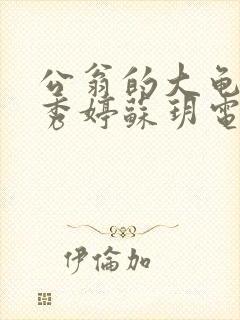 公翁的大龟
秀婷蘇玥電
伊倫加